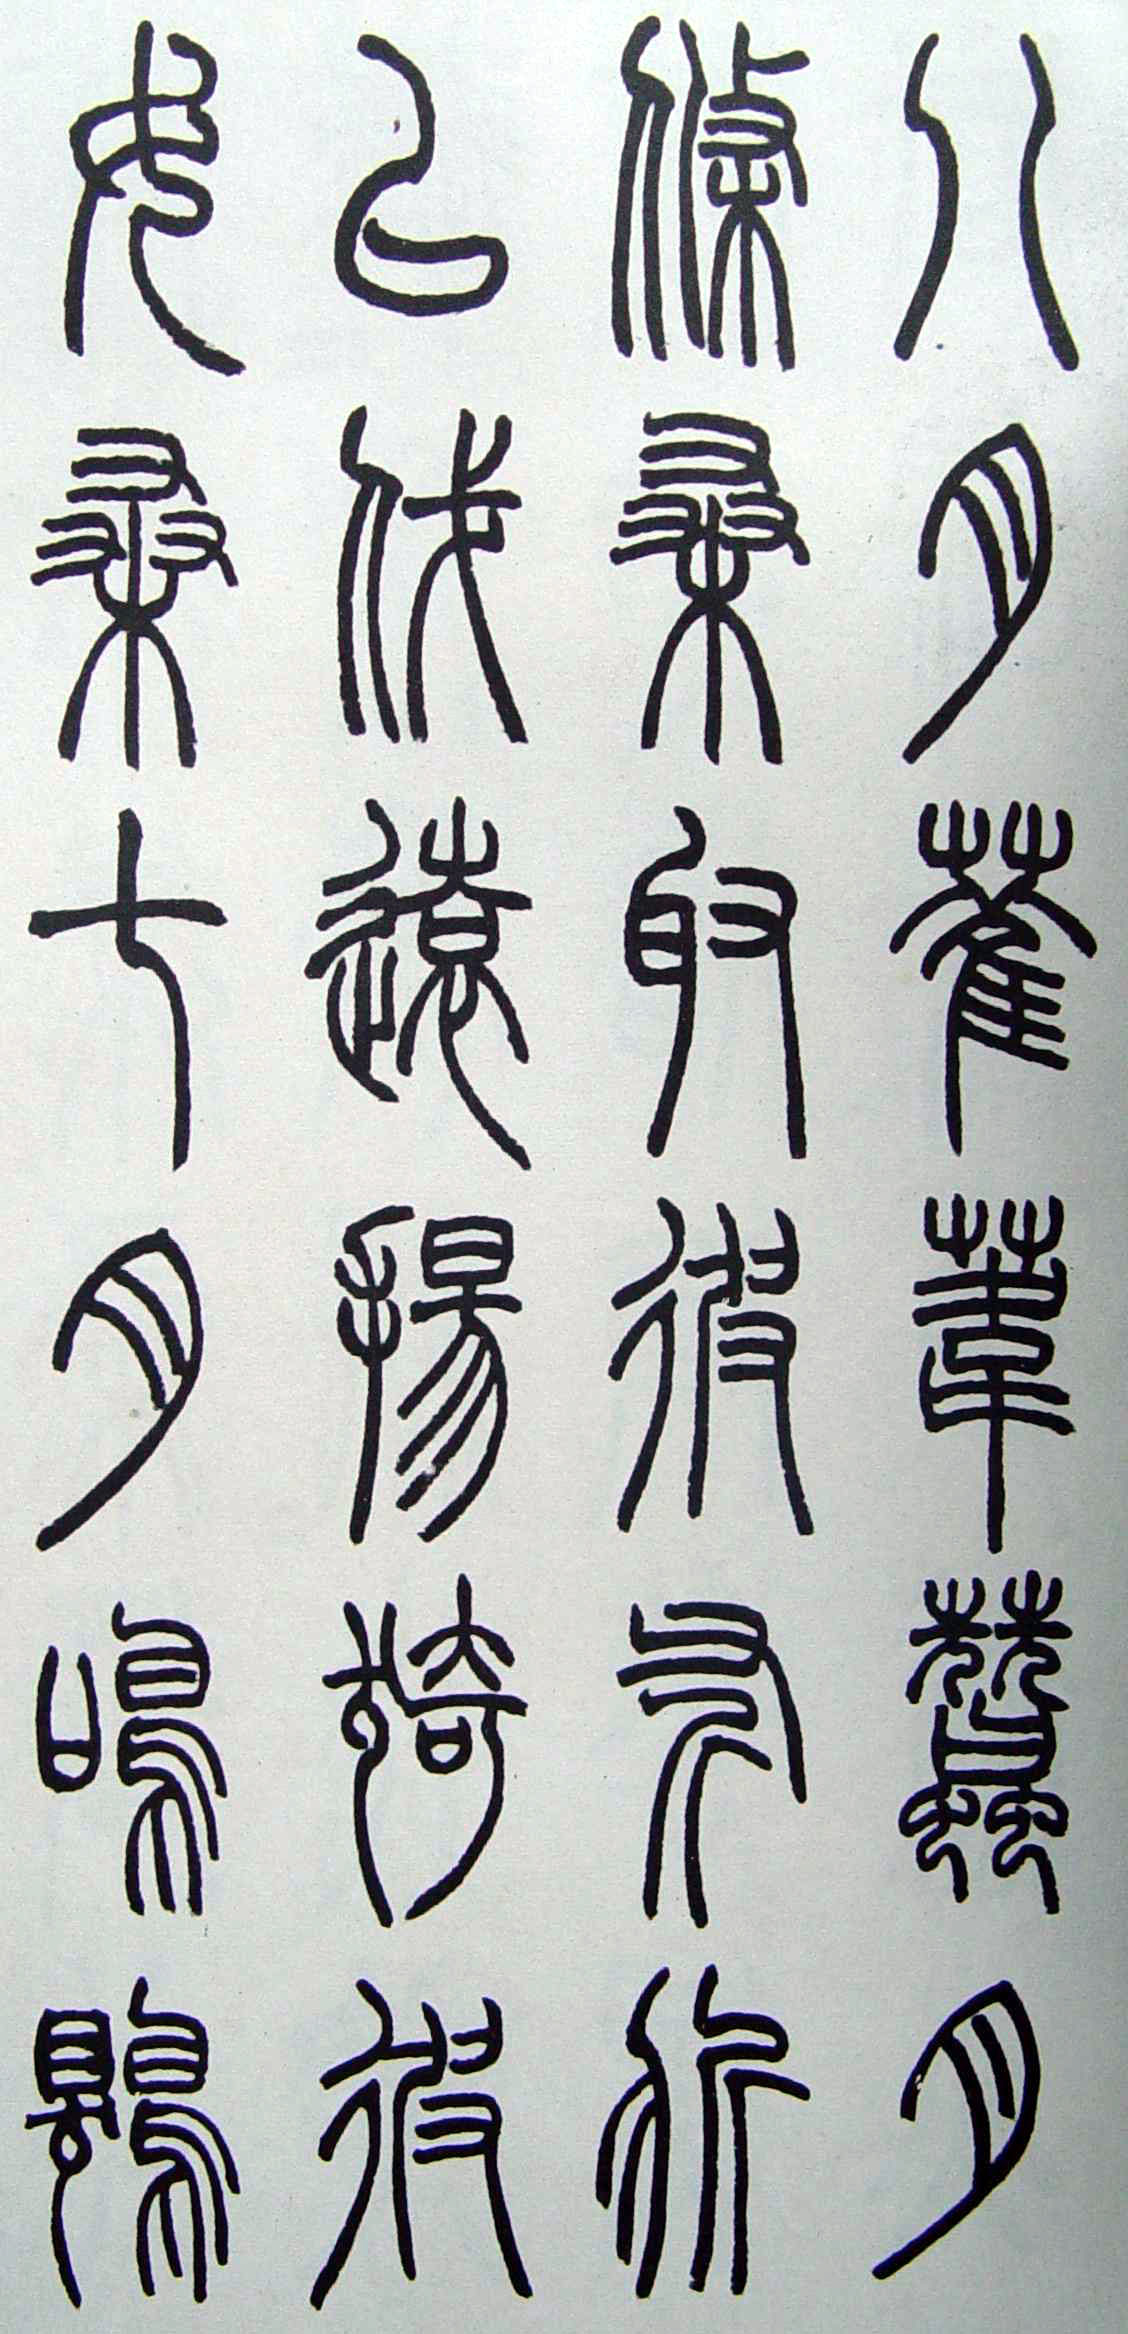 八月萑葦蠶月
條桑取彼斧斨
以伐遠揚猗彼
女桑七月鳴鶪